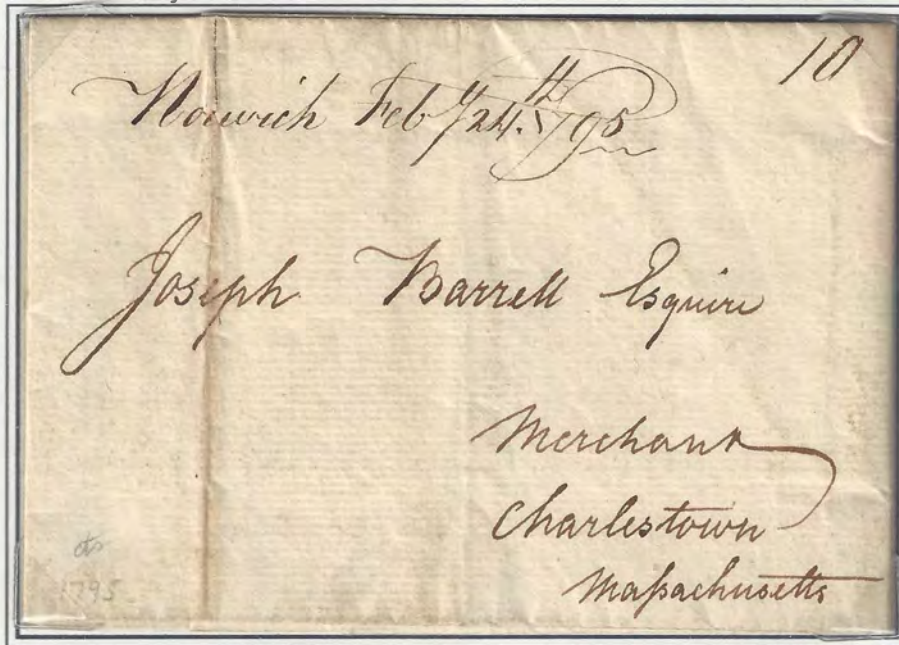 10
Norwich Feby 24th 1795
Joseph Barrell Esquire
Merchant
Charlestown
Maſsachusetts
1795